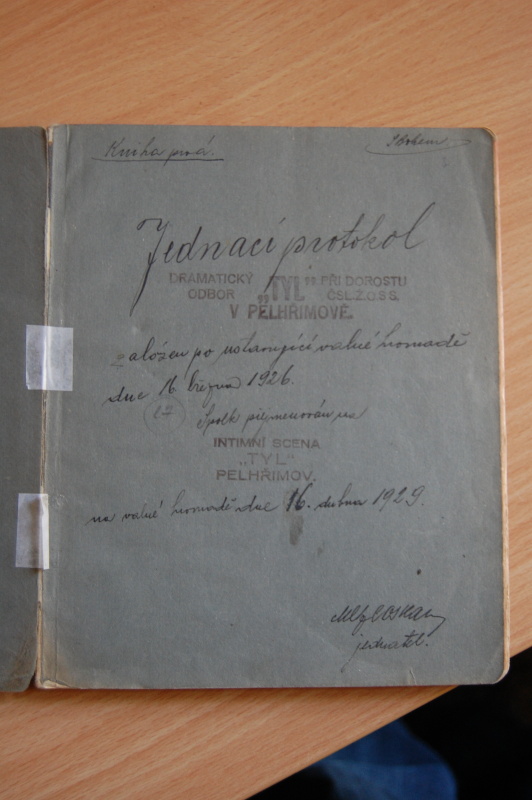 Kniha prvá.
Jednací protokol
DRAMATICKÝ ODBOR „TYL" PŘI DOROSTU ČSL.Ž.O.S S.
V PELHŘIMOVĚ.
založen po ustavující valné hromadě
dne 16. března 1926.
Spolk přejmenován na
INTIMNÍ SCENA
„TYL"
PELHŘIMOV.
na valné hromadě dne 16. dubna 1929.
jednatel.